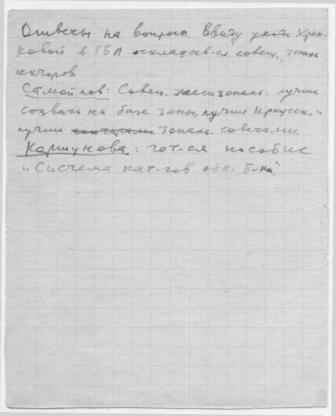 Ответы на вопросы. Ввиду ухода Хрен-
ковой в ГБЛ откладыв-ся совещ. зонал.
Самойлов: Совещ. зональн. лучше
созвать на базе зоны, лучше Иркутск.-
лучше зональ. совещание
Коршунова: гот-ся пособие
„Система кат-гов обл. б-ки"